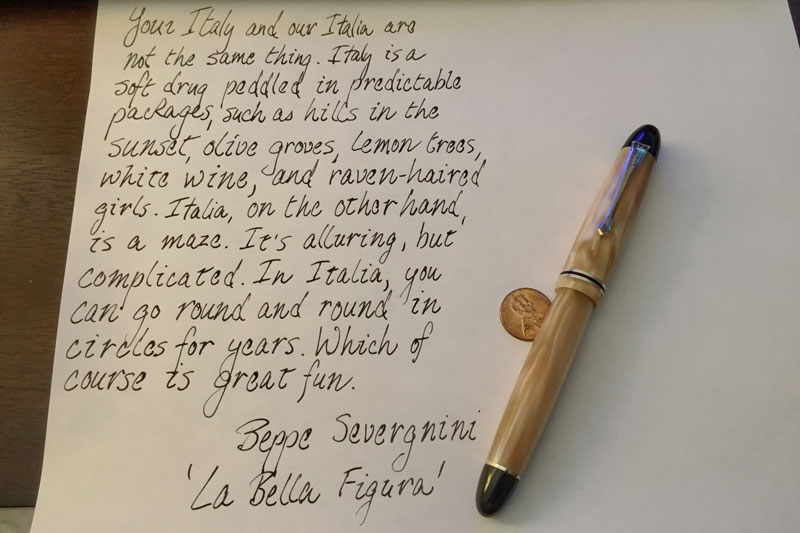 Your Italy and our Italia are
not the same thing. Italy is a
soft drug peddled in predictable
packages, such as hills in the
sunset, olive groves, lemon trees,
white wine, and raven-haired
girls. Italia, on the other hand,
is a maze. It's alluring, but
complicated. In Italia, you
can go round and round in
circles for years. Which of
course is great fun.
Beppe Severgnini
'La Bella Figura'